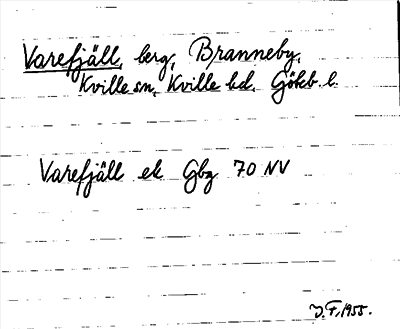 Varefjäll, berg, Branneby,
Kville sn, Kville hd, Göteb. l.
Varefjäll ek Gbg 70 NV
J.F. 1955.